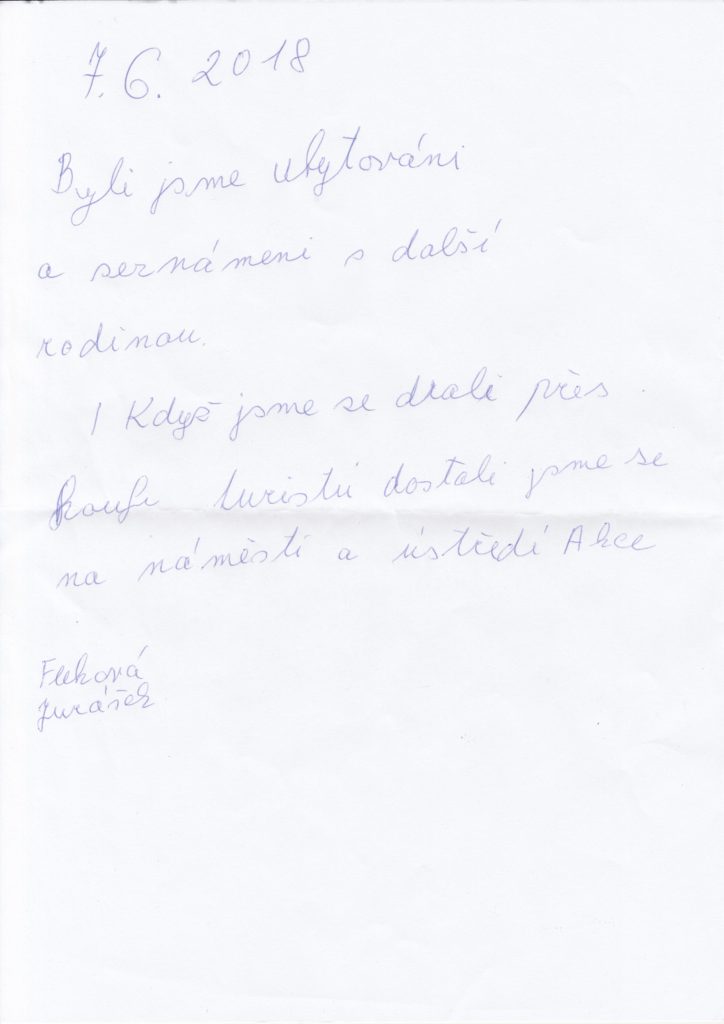 7. 6. 2018
Byli jsme ubytováni
a seznámeni s další
rodinou.
I Když jsme se drali přes
turistů dostali jsme se
na náměstí a ústředí Akce
Jurášek